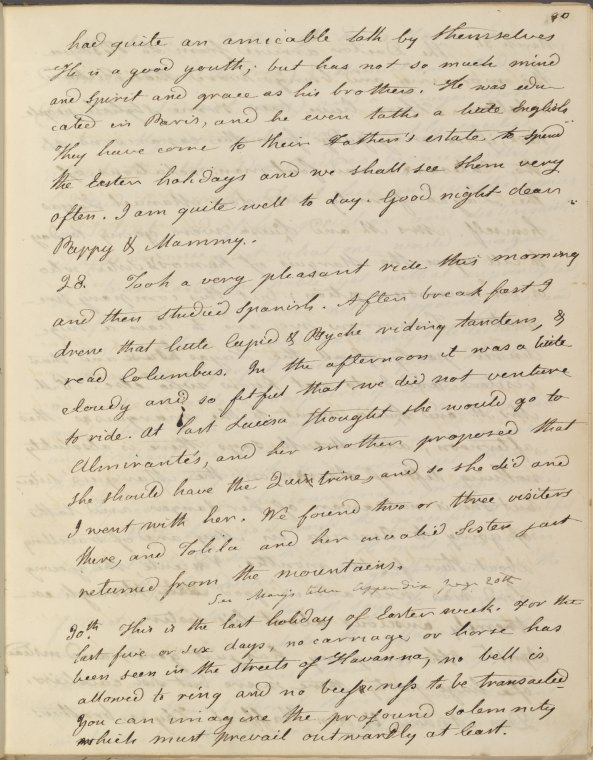 80
had quite an amicable talk by themselves
He is a good youth; but has not so much mind
and Spirit and grace as his brothers. He was edu-
cated in Paris, and he even talks a little English
They have come to their Father's estate to spend
the Easter holidays and we shall see them very
often. I am quite well to day. Good night dear
Pappy & Mammy.
28. Took a very pleasant ride this morning
and then studied Spanish. After breakfast I
drew that little Cupid & Psyche riding tandem, &
read Columbus. In the afternoon it was a little
cloudy and so fitful that we did not venture
to ride. At last Luisa thought she would go to
Almirante's, and her mother proposed that
she should have the Quintrine, and so she did and
I went with her. We found two or three visiters
there, and Tolila and her invalid Sister just
returned from the mountains.
See Mary's letter Appendix page 20th
30th. This is the last holiday of Easter week. For the
last five or six days, no carriage or horse has
been seen in the streets of Havanna, no bell is
allowed to ring and no business to be transacted.
You can imagine the profound solemnity
which must prevail outwardly at least.